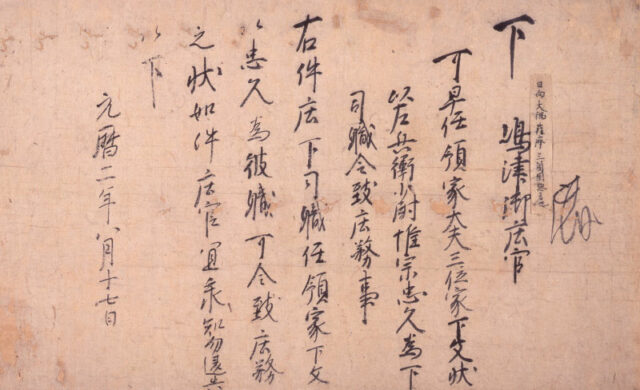 日向 大隅 薩摩 三箇国
下 嶋津御庄官
可早任領家大夫三位家下文状
以左兵衛少尉惟宗忠久為下
司職令致庄務事
右件庄下司職任領家下文
以忠久為彼職可令致庄務
之状如件庄官宜承知勿違失
以下
元暦二年八月十七日